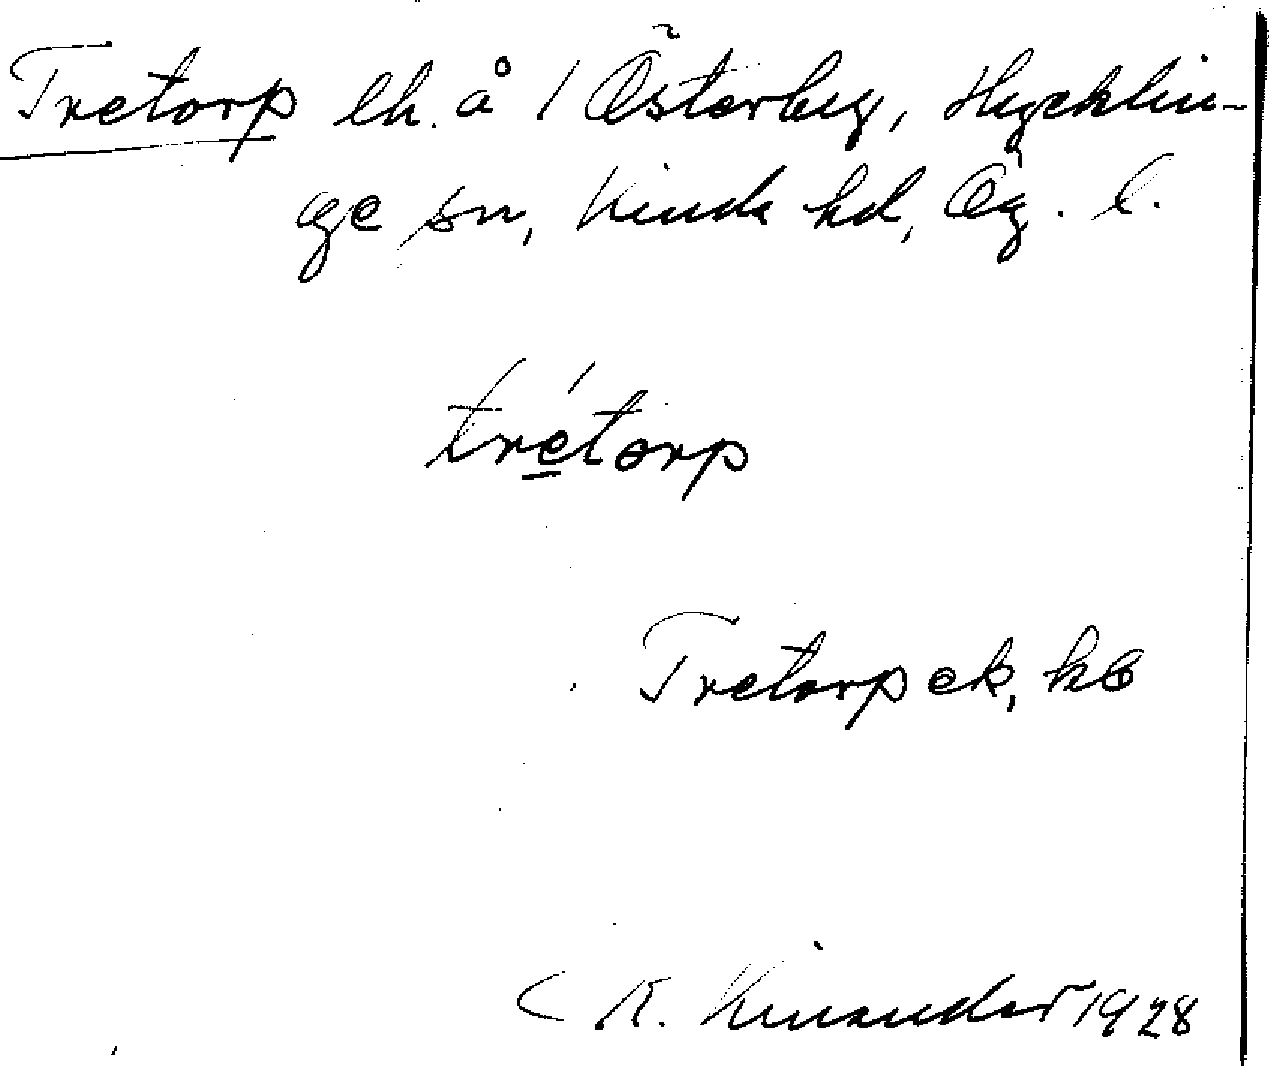 Tretorp lh. å 1 Österby, Hycklin-
ge sn, Kinda hd, Ög. l.
trétorp
Tretorp ek, kb
C K. Kinander 1928